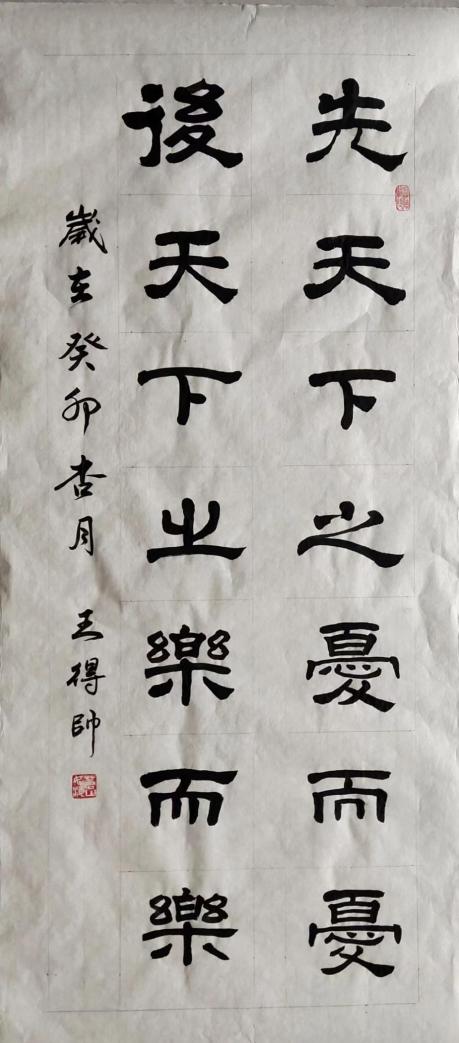 先天下之憂而憂
後天下之樂而樂
歲在癸卯杏月 王得帥